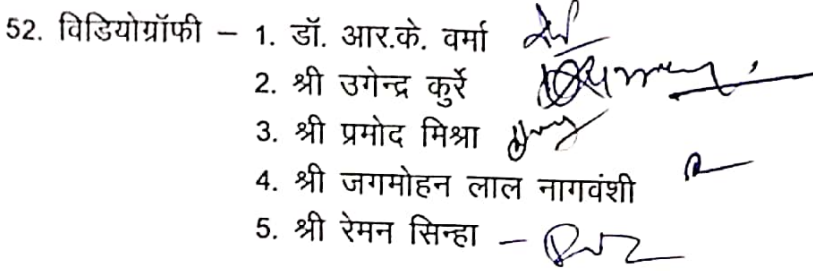 52. विडियोग्रॉफी – 1. डॉ. आर.के. वर्मा
2. श्री उगेन्द्र कुर्रे
3. श्री प्रमोद मिश्रा
4. श्री जगमोहन लाल नागवंशी
5. श्री रेमन सिन्हा –